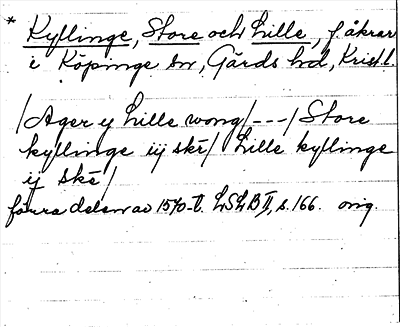 * Kyllinge, Store och Lille, f. åkrar
i Köpinge sn, Gärds hd, Kristl.
/Ager y Lille wong/---/Store
kyllinge iij skē/ Lille kyllinge
ij skē/
förra delen av 1570-t. LSLB II, s. 166. orig.